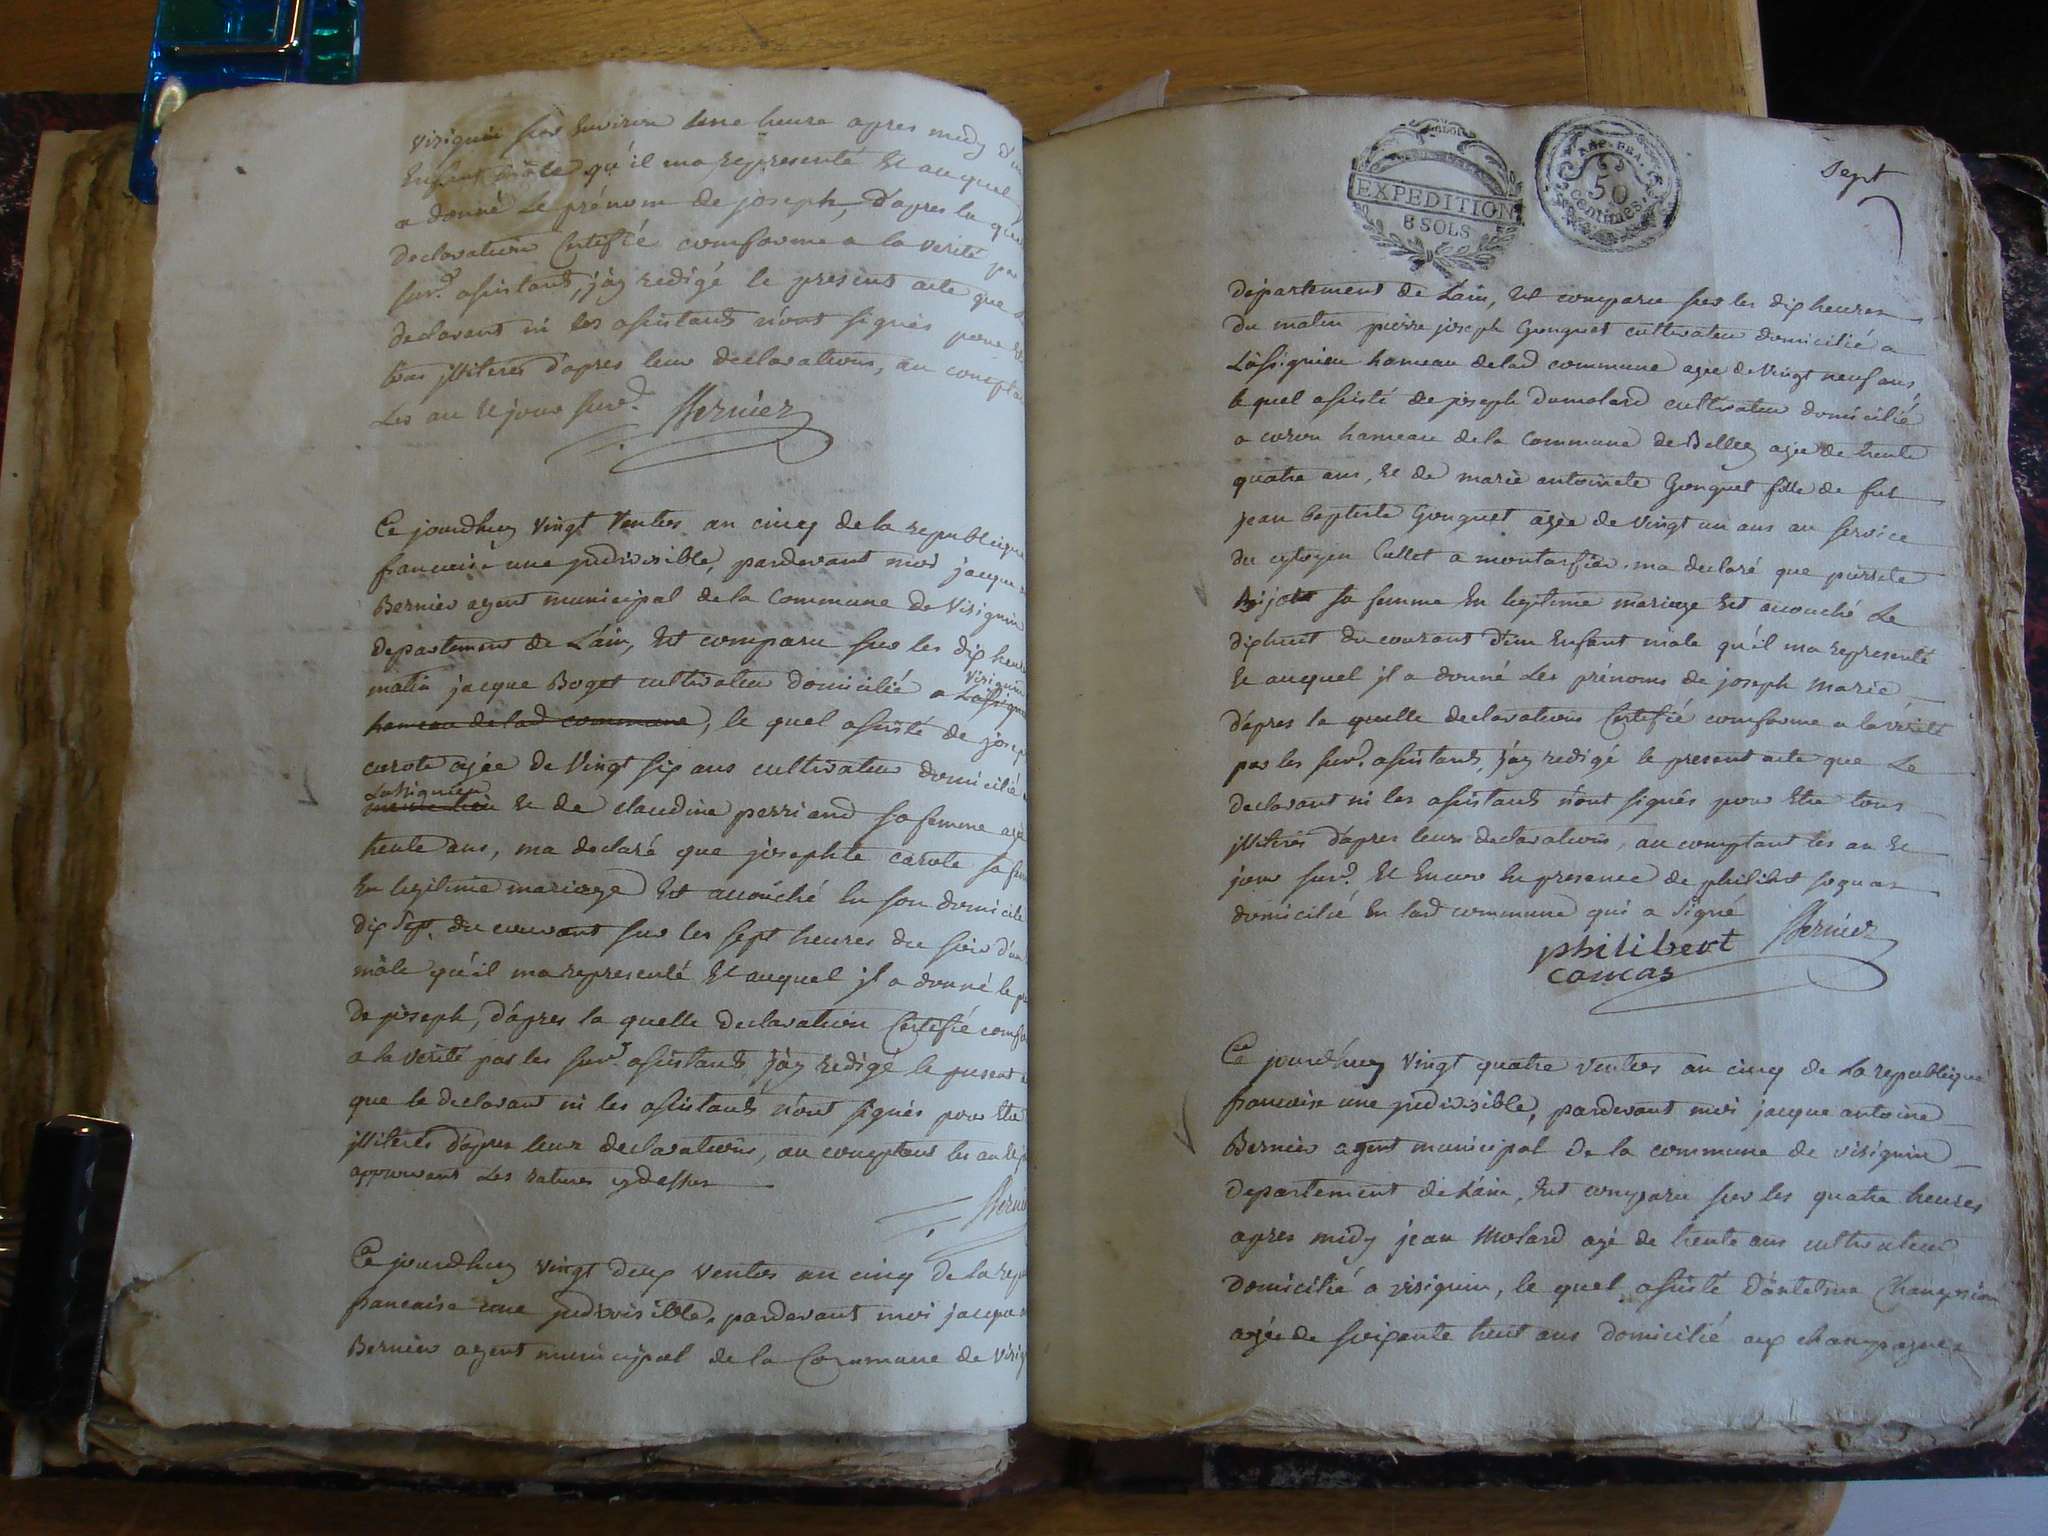 visignin sur Environ Une heure apres midy d'un
Enfant mâle qu'il ma representé Et au quel
a donné Le prénom de joseph, d'apres la quel
declaration Certifié comforme a la verité par
surd. assistants, j'ay redigé le present acte que
declarant ni les assistants n'ont signés pour
tous illiterés d'apres leur declarations, au comptant
Les an Et jour surd. Bernier
Ce jourdhuy vingt Ventos an cinq de la republique
francaise une indivisible, pardevant moi jacque
Bernier agent municipal de la Commune de Visignin
departement de L'ain, Est comparu sur les dix heures
visignin
matin jacque Boget cultivateur domicilié a Lassignieu
hameau de lad commune, le quel assisté de joseph
carote agée de Vingt six ans cultivateur domicilié
Lassignieu
Et de claudine perriand sa femme agée
trente ans, ma declaré que josephte carote sa fem
En legitime mariage Est accouché En son domicile
dix sept du courant sur les sept heures du soir d'un
mâle qu'il ma representé Et auquel jl a donné le pr
de joseph, d'apres la quelle declaration Certifié comfo
a la verité par les surd. assistants j'ay redigé le present
que le declarant ni les assistants n'ont signés pour Etre
illiterés d'apres leur declarations, au comptant les an Et j
approuvant Les ratures cydessus
Berni
Ce jourdhuy vingt deux ventos an cinq de la rep
francaise une jndivisible, pardevant moi jacque
Bernier agent municipal de la Commune de Visig
EXPEDITION
8 SOLS
50
Centimes
Sept
7
departement de L'ain, Est comparu sur les dix heures
du matin pierre joseph Gonguet cultivateur domicilié a
Lassignieu hameau de lad commune agée de Vingt neuf ans
le quel assisté de joseph Dumolard cultivateur domicilié
a coron hameau de la Commune de Belley agée de trente
quatre ans, Et de marie antoinete Gonguet fille de fut
jean baptiste Gonguet agée de vingt un ans au service
du cytoyen Cullet a montarfier, ma declaré que
sa femme En legitime mariage Est acouché Le
dixhuit du courant d'un Enfant mâle qu'il ma representé
Et auquel jl a donné Les prénoms de joseph marie
d'apres la quelle declaration Certifié comforme a la vérité
par les surd. assistants, j'ay redigé le present acte que Le
declarant ni les assistants n'ont signés pour Etre tous
illiterés d'apres leurs declarations, au comptant les an Et
jour surd. Et Encore En presence de philibert
domicilié En lad commune qui a signé
philibert Bernier
comas
Ce jourd'huy Vingt quatre ventos an cinq de La republique
francaise une jndivisible, pardevant moi jacque antoine
Bernier agent municipal de la commune de visignin
departement de L'ain, Est comparu sur les quatre heures
apres midy jean Molard agé de trente ans cultivateur
Domicilié a visignin, le quel assisté D'antelme Champion
agée de soixante huit ans domicilié aux champagnes